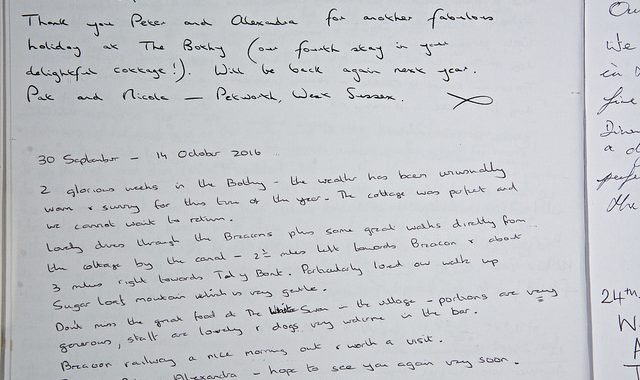 Thank you Peter and Alexandra for another fabulous
holiday at The Bothy (our fourth stay in your
delightful cottage!). Will be back again next year.
Pat and Nicola — Petworth, West Sussex.
30 September - 14 October 2016
2 glorious weeks in the Bothy - the weather has been unusually
warm & sunny for this time of the year. The cottage was perfect and
we cannot wait to return.
Lovely drives through the Brecons plus some great walks directly from
the cottage by the canal - 2½ miles left towards Brecon & about
3 miles right towards Tal y Bont. Particularly loved our walk up
Sugar Loaf mountain which is very gentle.
Don't miss the great food at The White Swan - the village - portions are very
generous, staff are lovely & dogs very welcome in the bar.
Brecon railway a nice morning out & worth a visit.
Alexandra - hope to see you again very soon.
Ou
We
in
fine
Dinner
a d
perfe
the
24th,
W
A
T